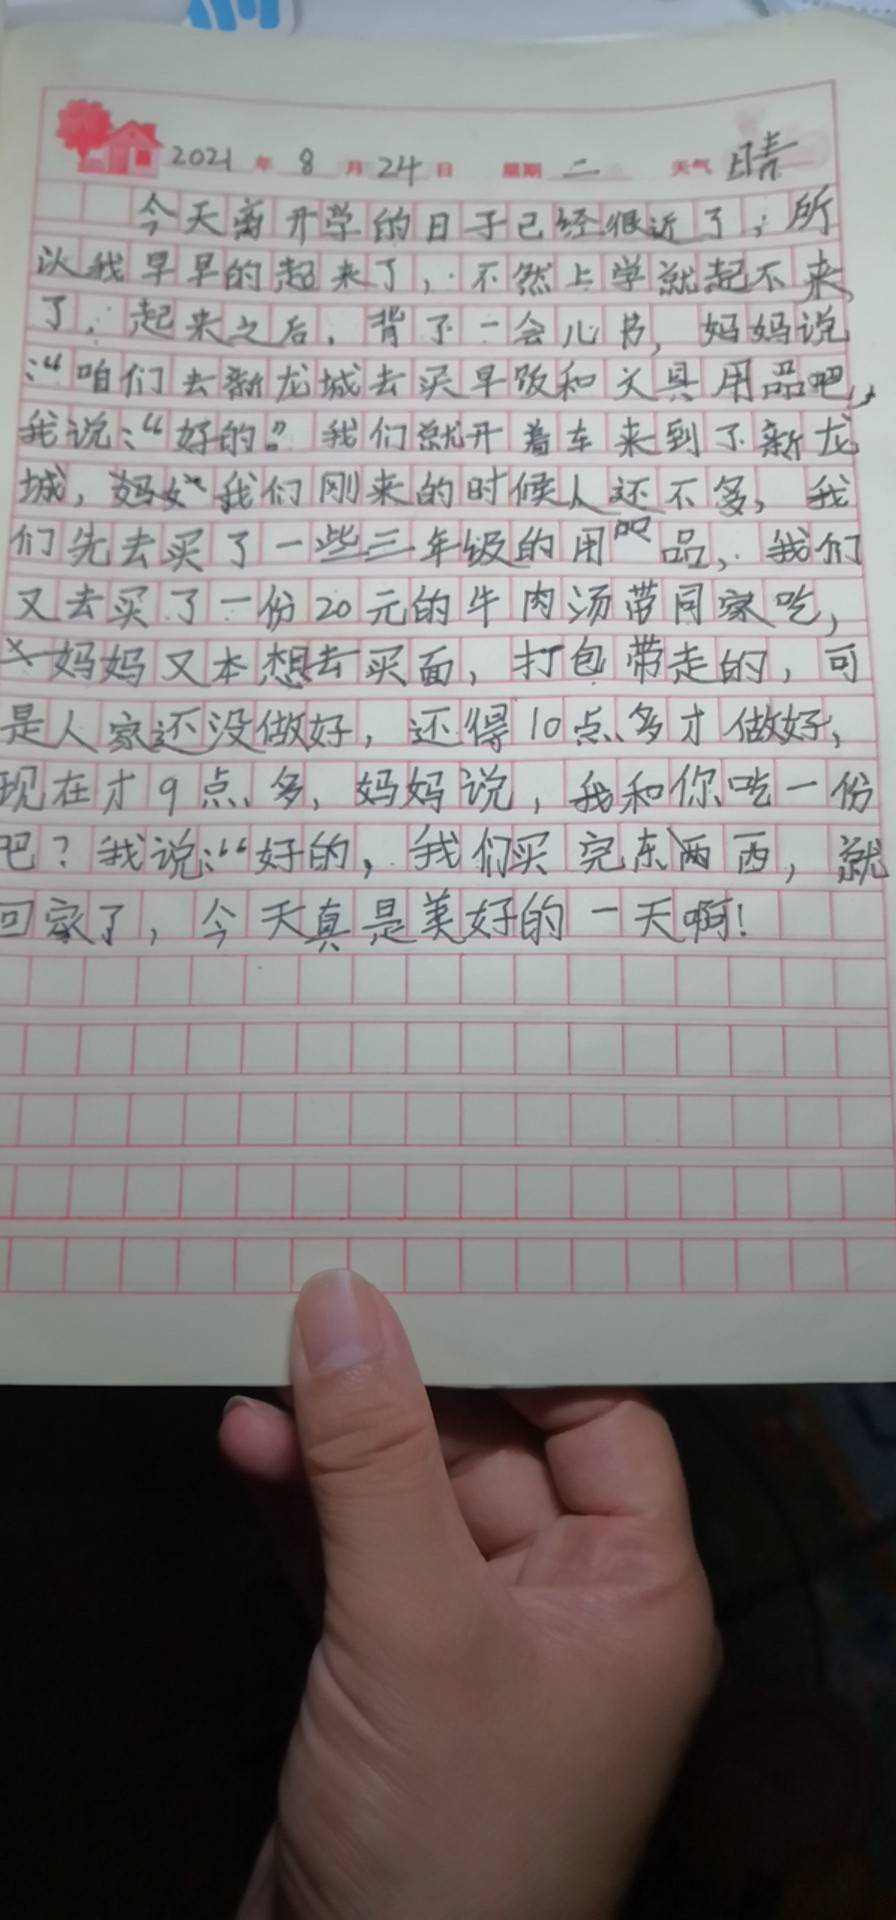 2021年8月24日 星期二 天气晴
今天离开学的日子已经很近了，所
以我早早的起来了，不然上学就起不来
了，起来之后，背了一会儿书，妈妈说
：“咱们去新龙城去买早饭和文具用品吧，
我说：“好的。”我们就开着车来到了新龙
城，我们刚来的时候人还不多，我
们先去买了一些三年级的用品，我们
又去买了一份20元的牛肉汤带回家吃，
妈妈又本想去买面，打包带走的，可
是人家还没做好，还得10点多才做好，
现在才9点多，妈妈说，我和你吃一份
吧？我说：“好的，我们买完东西，就
回家了，今天真是美好的一天啊！